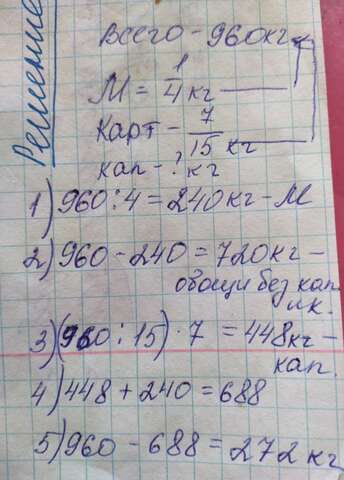 Решение
Всего - 960 кг
М = 1/4 кг
Карт - 7/15 кг
кап - ? кг
1) 960 : 4 = 240 кг - М
2) 960 - 240 = 720 кг -
овощи без кап.
и к.
3) (960 : 15) · 7 = 448 кг -
кап.
4) 448 + 240 = 688
5) 960 - 688 = 272 кг